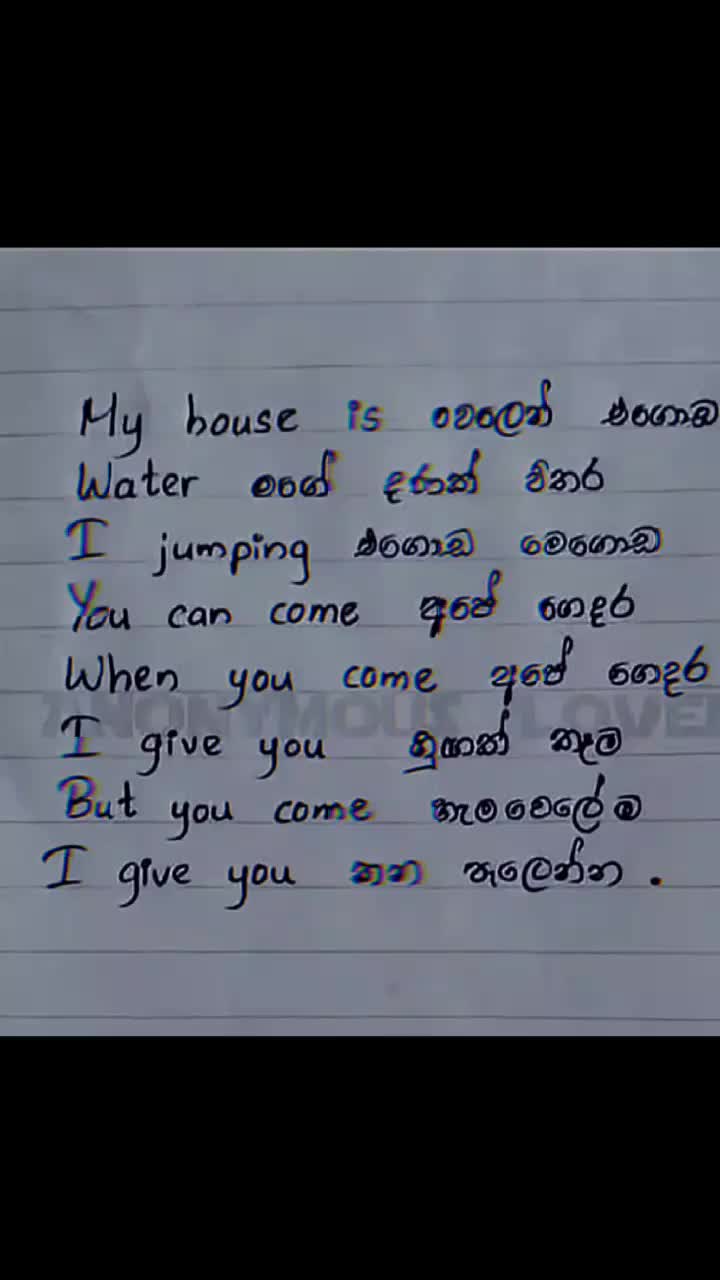 My house is වෙලෙන් එගොඩ
Water මගේ දණක් විතර
I jumping එගොඩ මෙගොඩ
You can come අපේ ගෙදර
When you come අපේ ගෙදර
ANONYMOUS LOVE
I give you හුඟක් කෑම
But you come හැමවෙලේම
I give you කන පැලෙන්න .